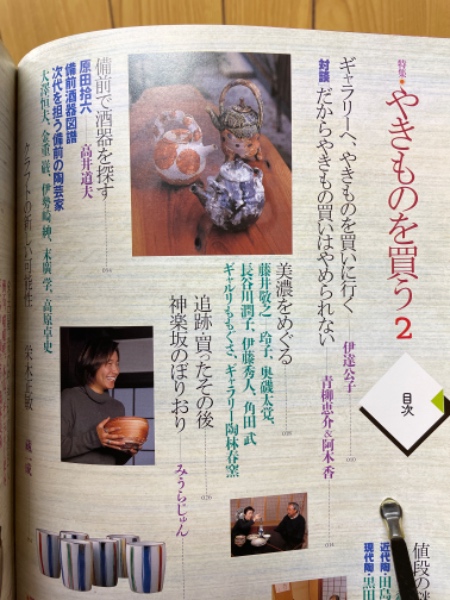 特集・やきものを買う 2
目次
ギャラリーへ、やきものを買いに行く 伊達公子
対談 だからやきもの買いはやめられない 青柳恵介&阿木香
美濃をめぐる
藤井敬之 玲子、奥磯太覚、
長谷川潤子、伊藤秀人、角田 武、
ギャルリももぐさ、ギャラリー陶林春窯
追跡・買ったその後
神楽坂のぼりおり みうらじゅん
備前で酒器を探す 高井道夫
原田拾六
備前酒器図譜
次代を担う備前の陶芸家
大澤恒夫、金重 巖、伊勢﨑 紳、末廣 学、高原卓史
値段の謎
近代陶・田
現代陶・黒田